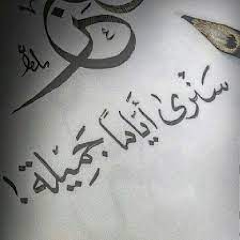 سَنَرىٰ أيّاماً جَمِيلة !